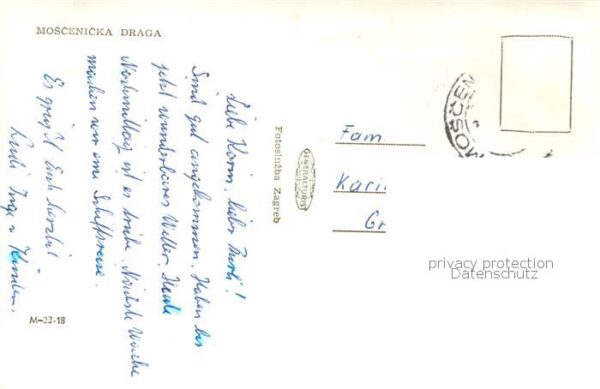 MOŠĆENIČKA DRAGA
Liebe Karin, lieber
Sind gut angekommen. Haben bis
jetzt wunderbares Wetter. Heute
Nachmittag ist es trübe. Nächste Woche
machen wir eine Schiffsreise.
Es grüßt Euch herzlich
Inge u. Kinder,
M-22-18
Fotoslužba Zagreb
GENERALTURIST
Fam
Kari
Gr
MOŠĆEN
privacy protection
Datenschutz